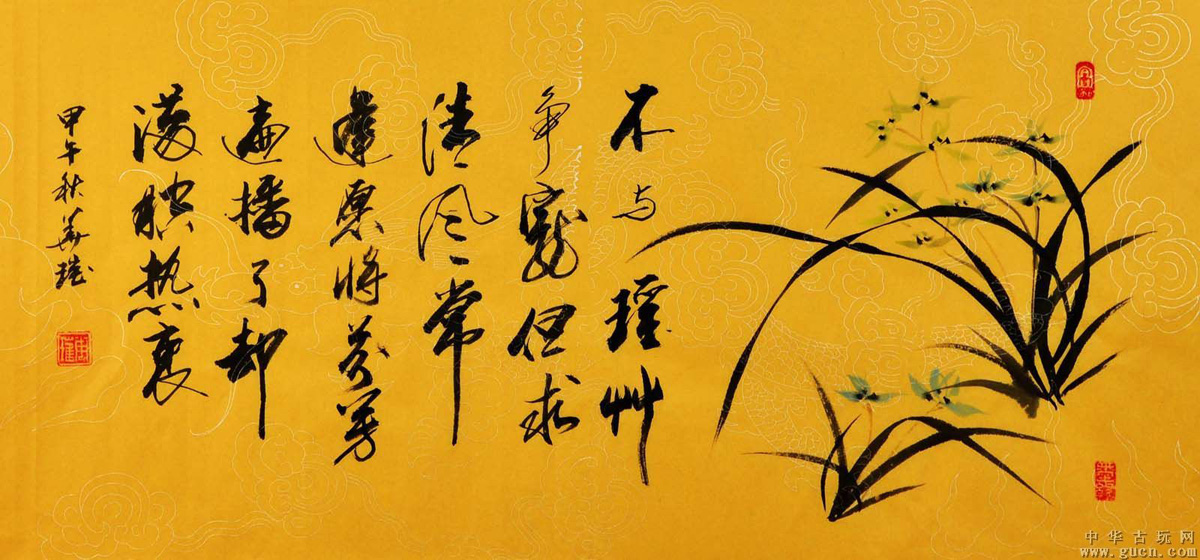 不与瑶艸
争寵但求
清风常
逢愿将芬芳
遍播了却
满腔热衷
甲午秋華
中华古玩网
www.gucn.com